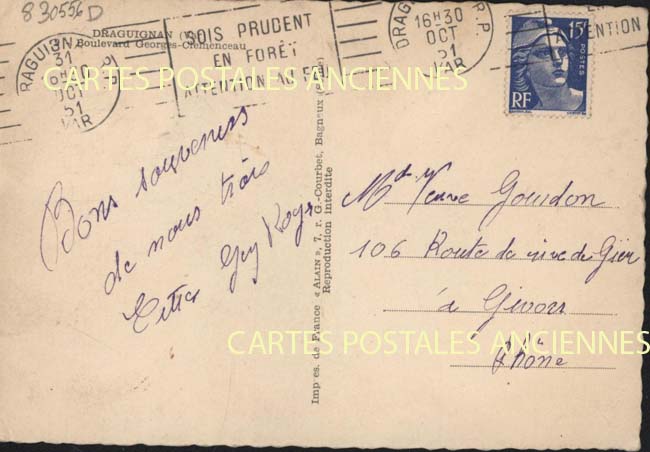 830556D
DRAGUIGNAN (Var)
Boulevard Georges-Clemenceau
RAGUIGNAN R.P.
31
OCT
51
VAR
SOIS PRUDENT
EN FORÊT
ATTENTION AU FEU
DRAGUIGNAN R.P.
16H30
OCT
51
VAR
EN
ATTENTION
15F
POSTES
RF
CARTES POSTALES ANCIENNES
Bons souvenirs
de nous trois
Guy Roger
Imp es. de France « ALAIN », 7, r. G.-Courbet, Bagneux (Seine)
Reproduction Interdite
Mde Veuve Gourdon
106 Route de rive de Gier
à Givors
Rhône
CARTES POSTALES ANCIENNES